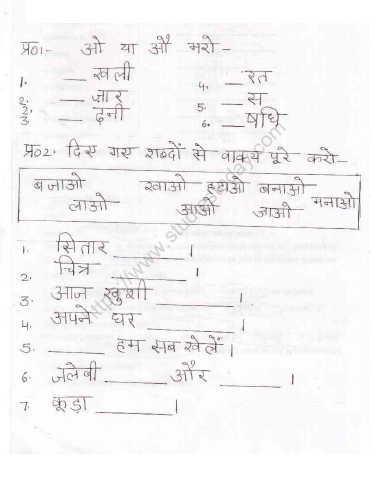 प्र01- ओ या औ भरो -
1. __ खली
2. __ ज़ार
3. __ ढ़नी
4. __ रत
5. __ स
6. __ षधि
प्र02. दिए गए शब्दों से वाक्य पूरे करो-
बजाओ खाओ हटाओ बनाओ
लाओ आओ जाओ मनाओ
1. सितार ________ ।
2. चित्र ________ ।
3. आज खुशी ________ ।
4. अपने घर ________ ।
5. ______ हम सब खेलें ।
6. जलेबी ______ और ______ ।
7. कूड़ा ________ ।
https://www.studiestoday.com